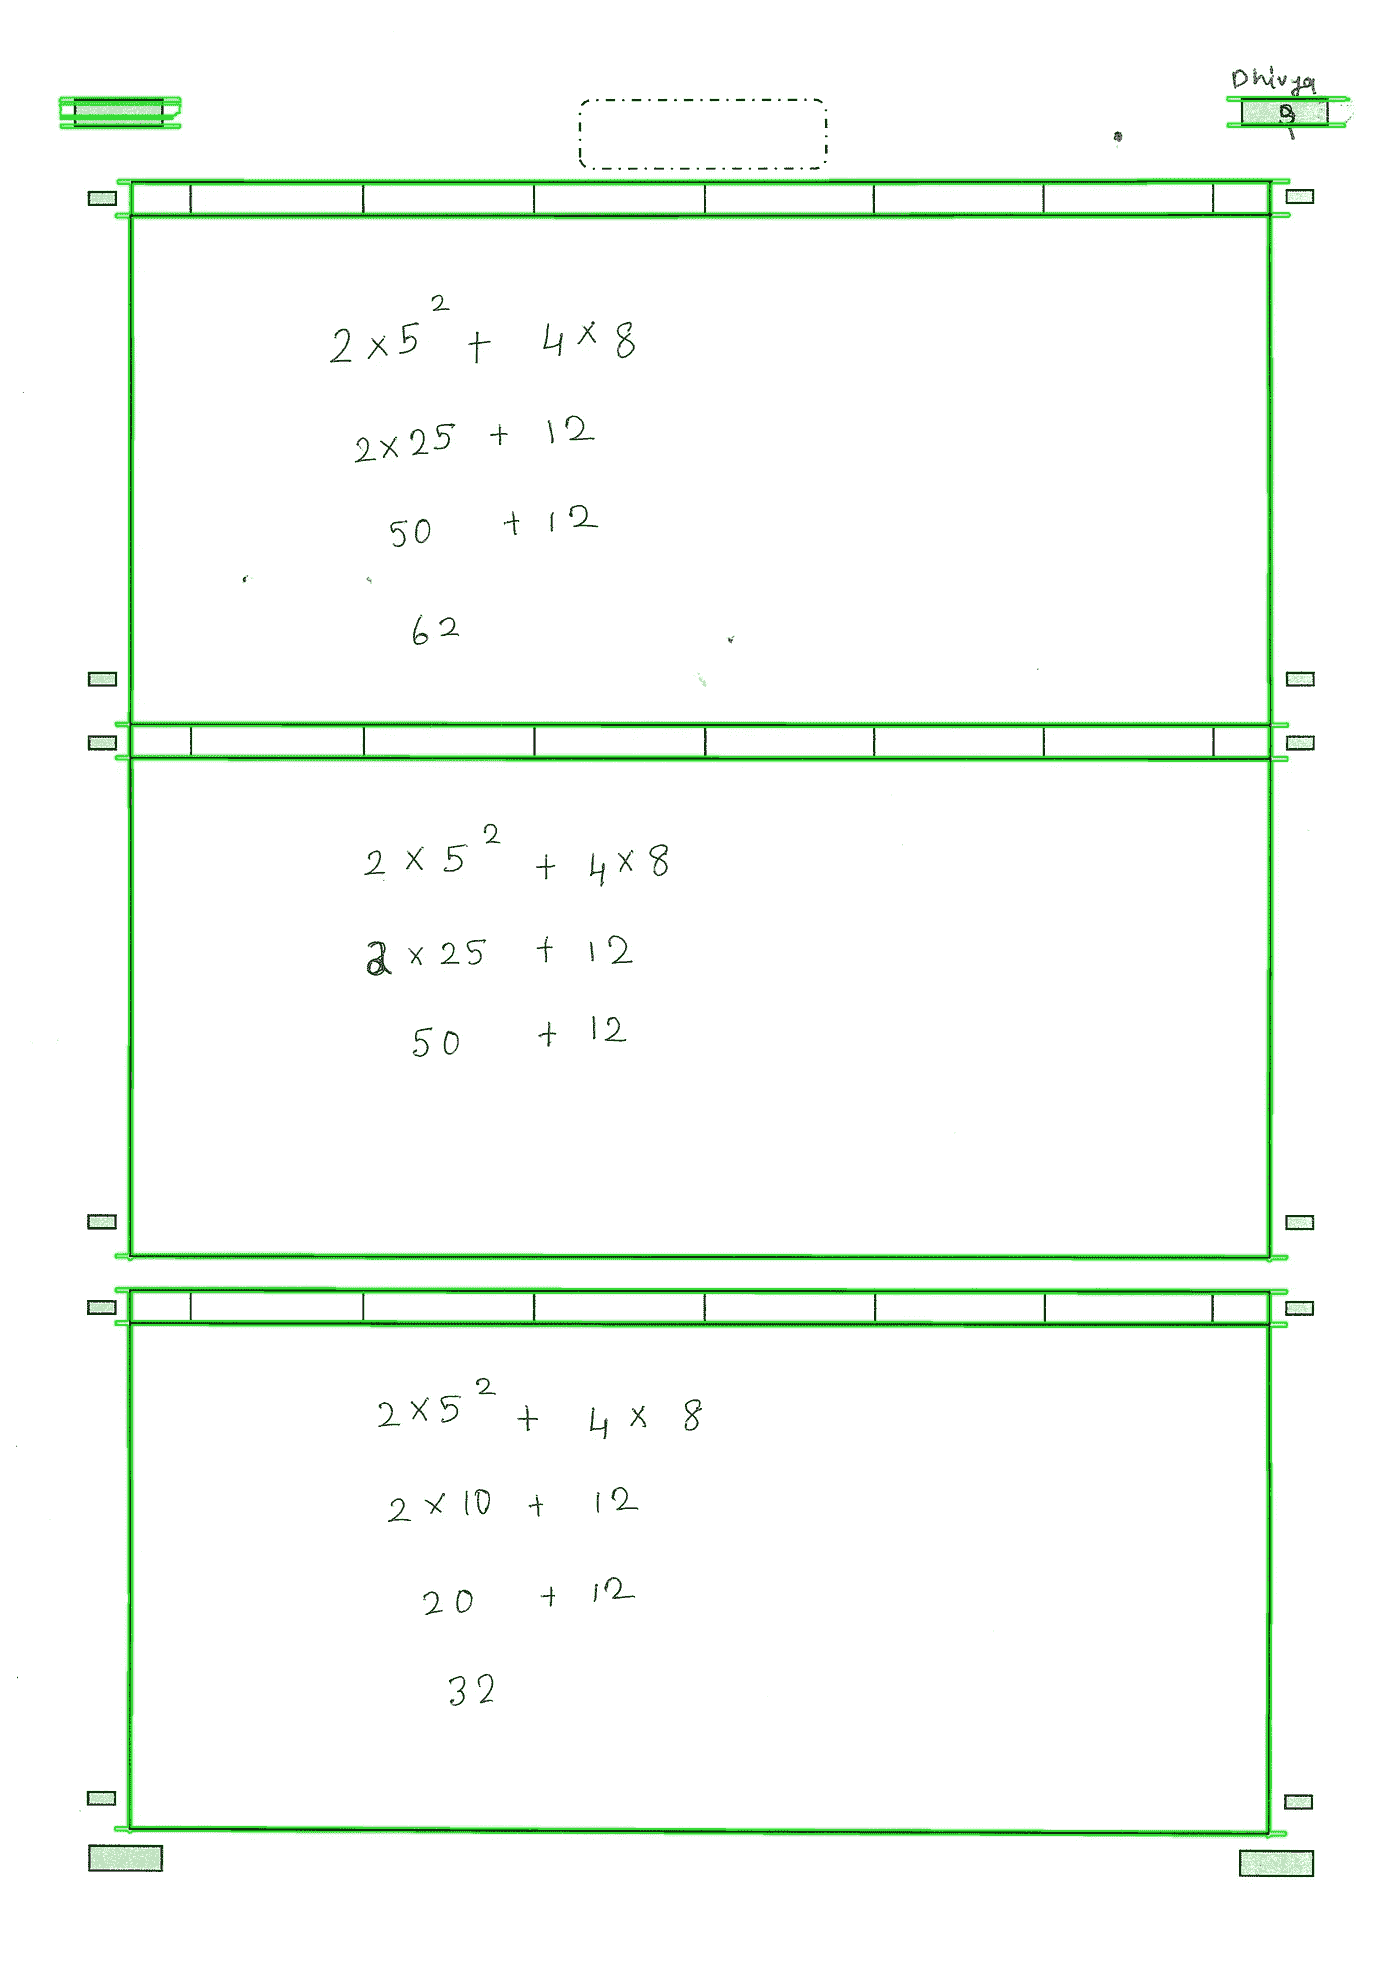 Dhivya
2 × 5² + 4 × 8
2 × 25 + 12
50 + 12
62
2 × 5² + 4 × 8
2 × 25 + 12
50 + 12
2 × 5² + 4 × 8
2 × 10 + 12
20 + 12
32